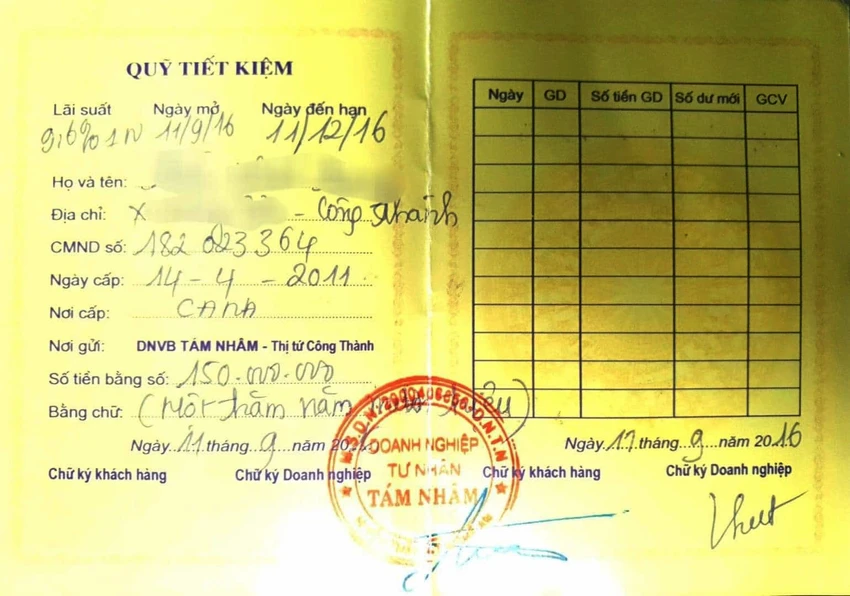 QUỸ TIẾT KIỆM
Lãi suất Ngày mở Ngày đến hạn
9,6% 1N 11/9/16 11/12/16
Họ và tên:
Địa chỉ: X - Công Thành
CMND số: 182 023 364
Ngày cấp: 14 - 4 - 2011
Nơi cấp: CANA
Nơi gửi: DNVB TÁM NHÂM - Thị tứ Công Thành
Số tiền bằng số: 150.000.000
Bằng chữ: (Một trăm năm
Ngày 11 tháng 9 năm
Chữ ký khách hàng Chữ ký Doanh nghiệp
DOANH NGHIỆP
TƯ NHÂN
TÁM NHÂM
Ngày GD Số tiền GD Số dư mới GCV
Ngày 11 tháng 9 năm 2016
Chữ ký khách hàng Chữ ký Doanh nghiệp